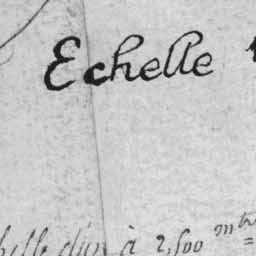 Echelle
helle d'un à 2,500 mtre